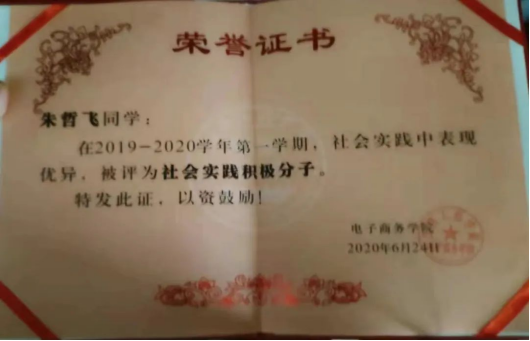 荣誉证书
朱哲飞同学：
在2019-2020学年第一学期，社会实践中表现
优异，被评为社会实践积极分子。
特发此证，以资鼓励！
电子商务学院
2020年6月24日